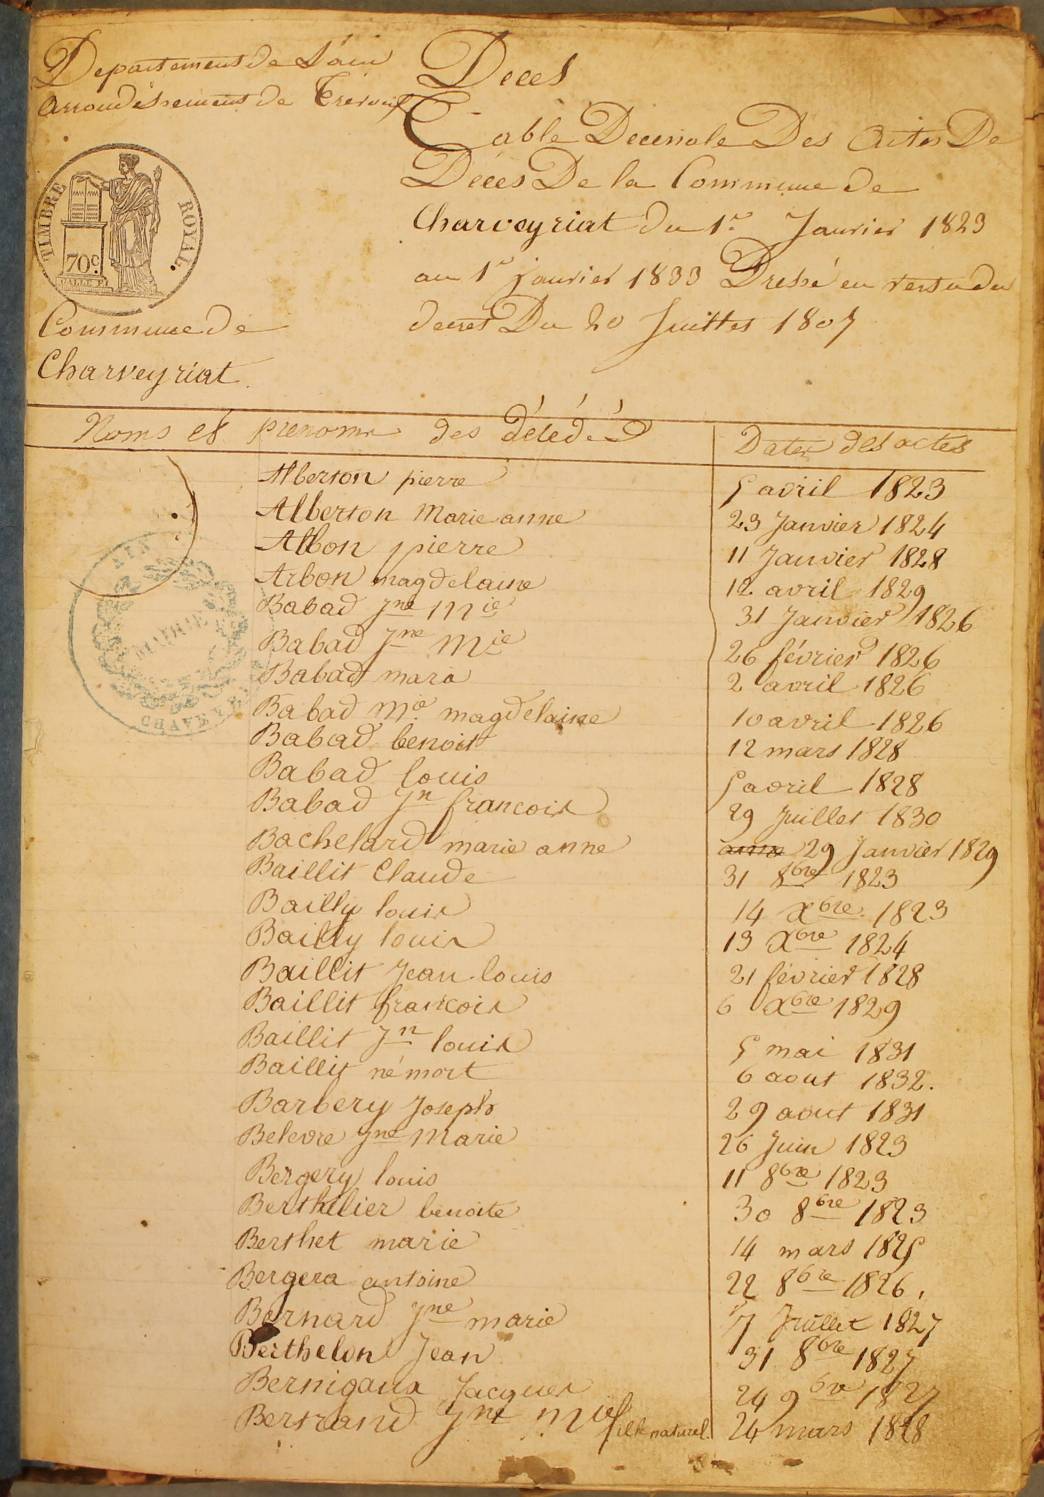 Departement de L'ain
arrondissement de Trevoux
TIMBRE ROYAL.
70c.
Commune de
Charveyriat
Deces
Table Decenale Des Actes De
Déces De la Commune de
Charveyriat du 1er Janvier 1823
au 1er janvier 1833 Dressé en vertu du
decret Du 20 Juillet 1807
Noms et prenoms des décédés
Dates des actes
Alberton pierre 5 avril 1823
Alberton Marie anne 23 Janvier 1824
Albon pierre 11 Janvier 1828
Arbon magdelaine 12 avril 1829
Babad Jne Mie 31 Janvier 1826
Babad Jne Mie 26 février 1826
Babad maria 2 avril 1826
Babad Mie magdelaine 10 avril 1826
Babad benoit 12 mars 1828
Babad louis 5 avril 1828
Babad Jn francois 29 Juillet 1830
Bachelard marie anne 29 Janvier 1829
Baillit Claude 31 8bre 1823
Bailly louis 14 Xbre 1823
Bailly louis 13 Xbre 1824
Baillit Jean louis 21 février 1828
Baillit francois 6 Xbre 1829
Baillit Jn louis 5 mai 1831
Baillit né mort 6 aout 1832.
Barbery Joseph 29 aout 1831
Belevre Jne Marie 26 Juin 1823
Bergery louis 11 8bre 1823
Berthelier benoite 30 8bre 1823
Berthet marie 14 mars 1825
Bergera antoine 22 8bre 1826.
Bernard Jne marie 7 Juillet 1827
Berthelon Jean 31 8bre 1827
Bernigaux Jacques 24 9bre 1827
Bertrand Jne Mie fille naturel 24 mars 1828
AIN
MAIRIE